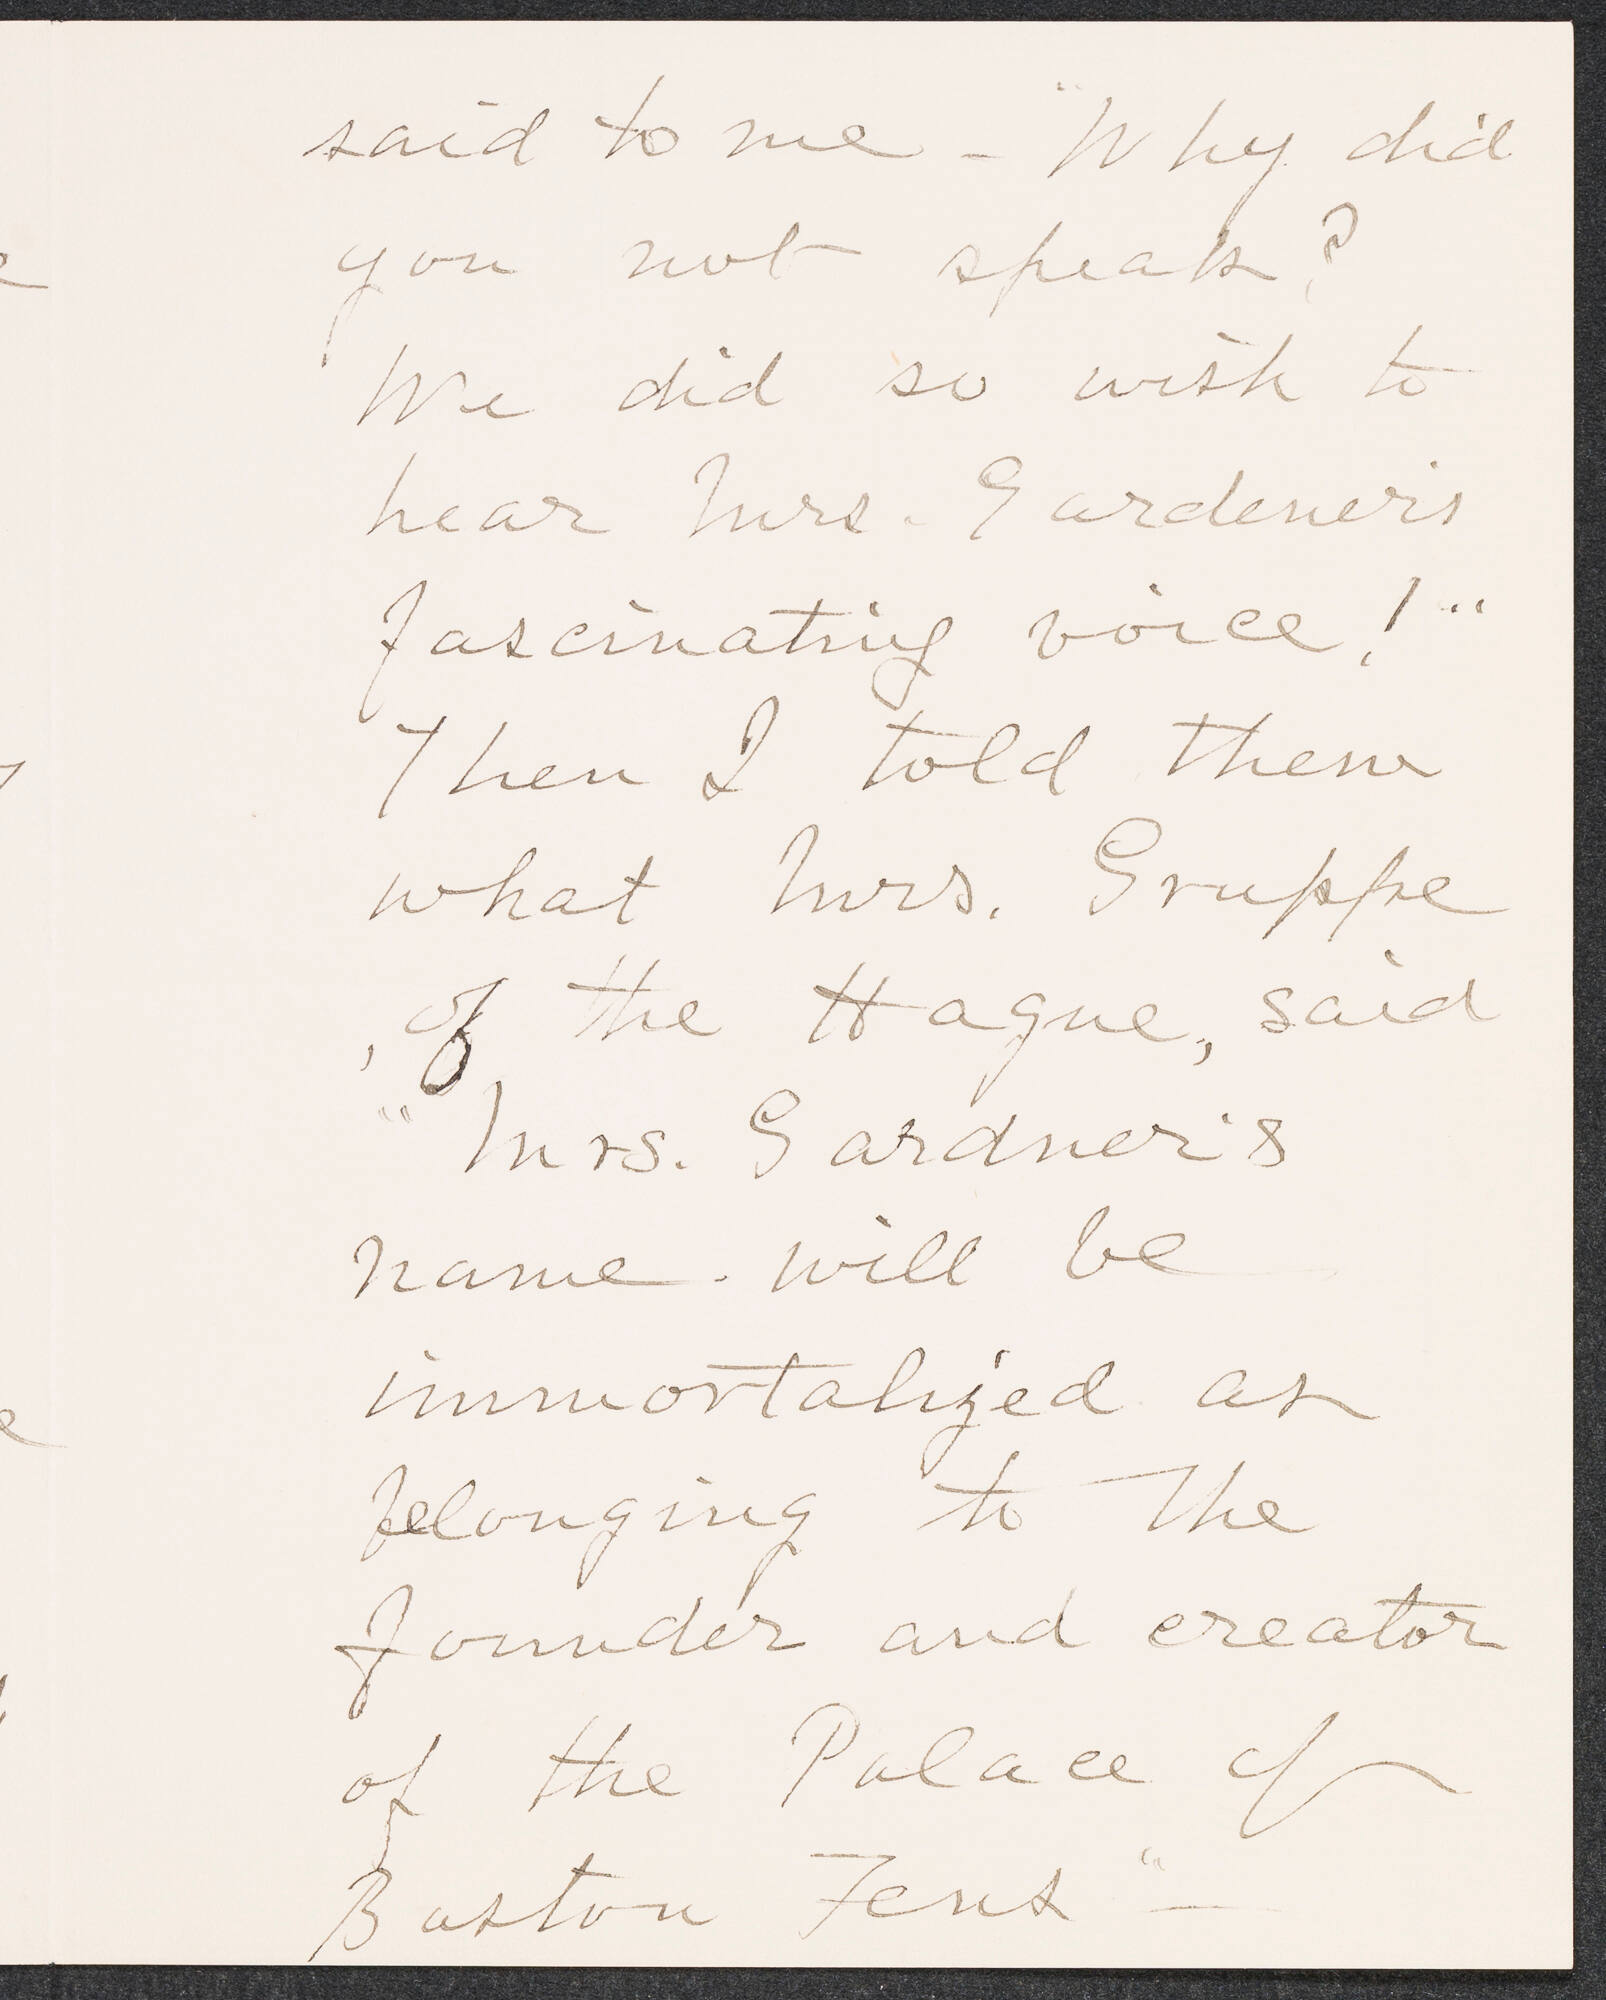 said to me - "Why did
you not speak?
We did so wish to
hear Mrs. Gardener's
fascinating voice!"
Then I told them
what Mrs. Gruppe
, of the Hague, said
"Mrs. Gardner's
name will be
immortalized as
belonging to the
founder and creator
of the Palace of
Boston Fens" -